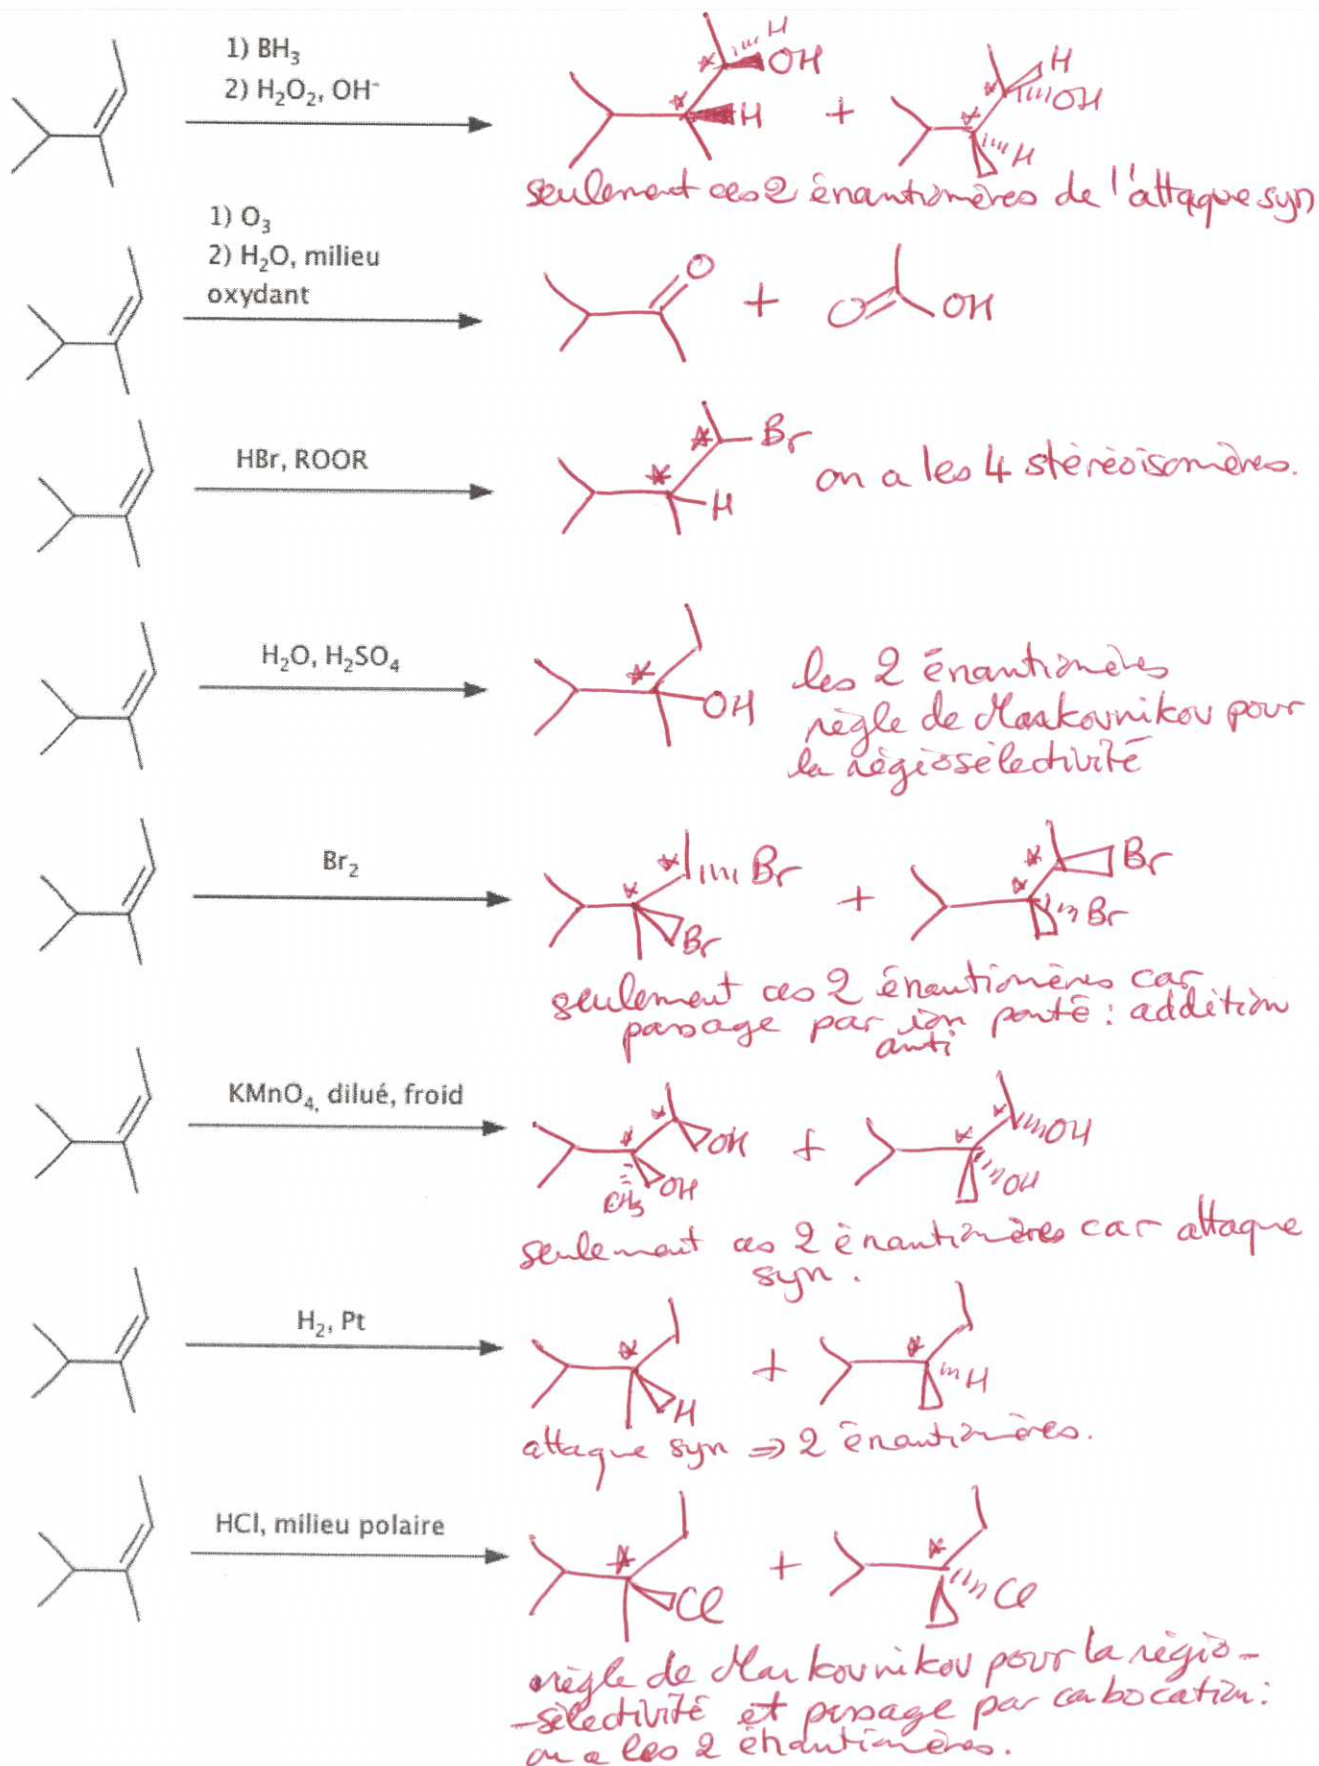 1) BH₃
2) H₂O₂, OH⁻
H
OH
H
+
H
OH
H
seulement ces 2 énantiomères de l'attaque syn
1) O₃
2) H₂O, milieu
oxydant
O
+
O
OH
HBr, ROOR
Br
H
on a les 4 stéréoisomères.
H₂O, H₂SO₄
OH
les 2 énantiomères
règle de Markovnikov pour
la régiosélectivité
Br₂
Br
Br
+
Br
Br
seulement ces 2 énantiomères car
passage par ion ponté : addition
anti
KMnO₄, dilué, froid
OH
CH₃
OH
+
OH
OH
seulement ces 2 énantiomères car attaque
syn.
H₂, Pt
H
+
H
attaque syn ⇒ 2 énantiomères.
HCl, milieu polaire
Cl
+
Cl
règle de Markovnikov pour la régio-
-sélectivité et passage par carbocation :
on a les 2 énantiomères.